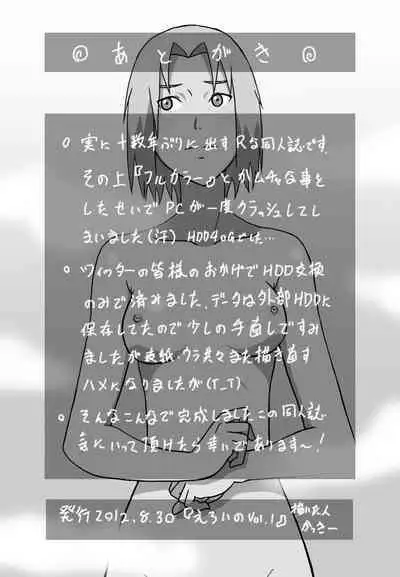 ◎ あとがき ◎
○ 実に十数年ぶりに出すRな同人誌です。
その上『フルカラー』とかムチャな事を
したせいでPCが一度クラッシュしてし
まいました(汗) HDD40Gでした…
○ ツイッターの皆様のおかげでHDD交換
のみで済みました。データは外部HDDに
保存してたので少しの手直しですみ
ましたが表紙・ウラ共々また描き直す
ハメになりましたが(T_T)
○ そんなこんなで完成しましたこの同人誌
気にいって頂けたら幸いであります~!
発行2012.8.30『えろいのVol.1』描いた人
かっきー